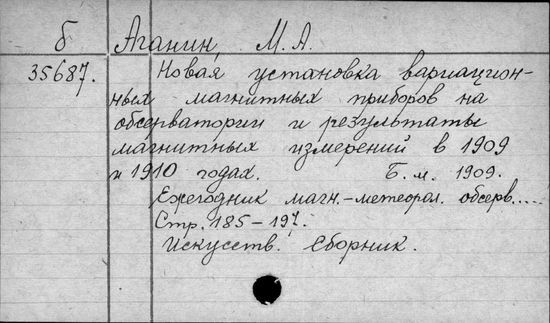 б Аганин, М. А.
35687. Новая установка вариацион-
ных магнитных приборов на
обсерватории и результаты
магнитных измерений в 1909
и 1910 годах. Б. м. 1909.
Ежегодник магн.-метеорол. обсерв....
Стр. 185-197.
Искусств. сборник.